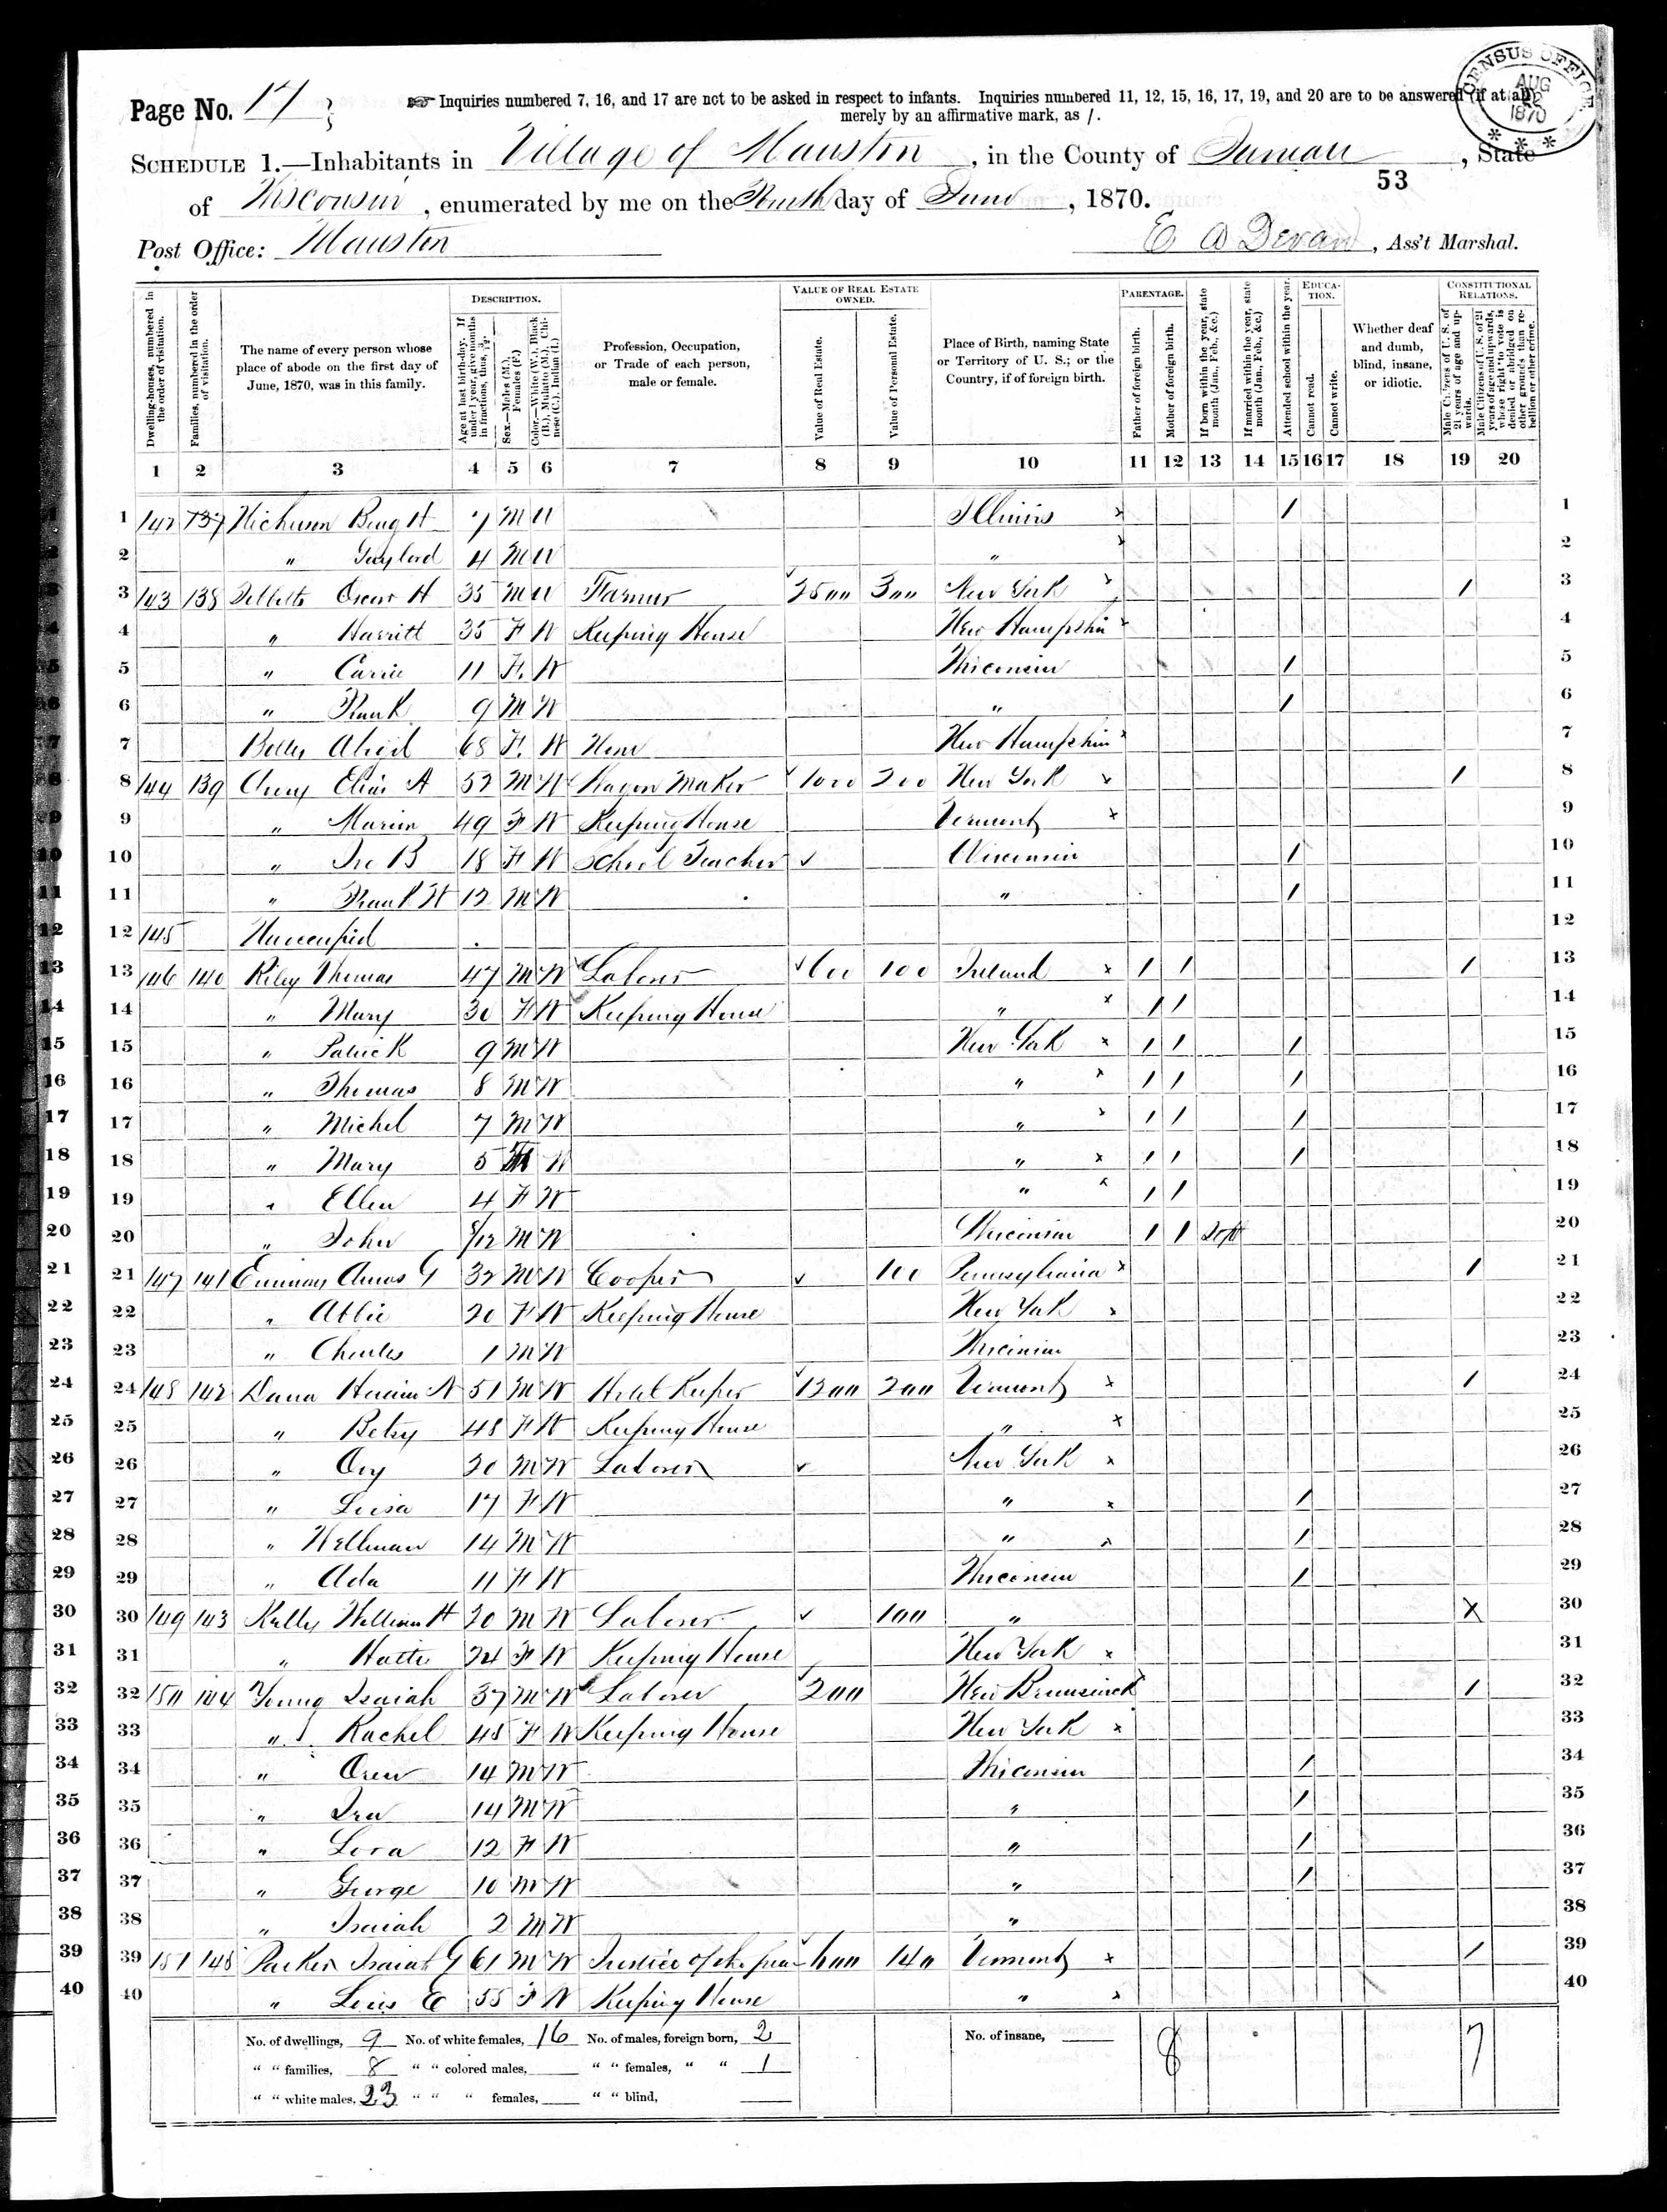 Page No. 17
☞ Inquiries numbered 7, 16, and 17 are not to be asked in respect to infants. Inquiries numbered 11, 12, 15, 16, 17, 19, and 20 are to be answered (if at all)
merely by an affirmative mark, as /.
CENSUS OFFICE AUG 1870
SCHEDULE 1.—Inhabitants in Village of Mauston, in the County of Juneau, State
53
of Wisconsin, enumerated by me on the Tenth day of June, 1870.
Post Office: Mauston
E A Devan, Ass't Marshal.
Dwelling-houses, numbered in the order of visitation.
Families, numbered in the order of visitation.
The name of every person whose place of abode on the first day of June, 1870, was in this family.
DESCRIPTION.
Age at last birthday. If under 1 year, give months in fractions, thus, 3/12.
Sex.—Males (M.), Females (F.)
Color.—White (W.), Black (B.), Mulatto (M.), Chinese (C.), Indian (I.)
Profession, Occupation, or Trade of each person, male or female.
VALUE OF REAL ESTATE OWNED.
Value of Real Estate.
Value of Personal Estate.
Place of Birth, naming State or Territory of U. S.; or the Country, if of foreign birth.
PARENTAGE.
Father of foreign birth.
Mother of foreign birth.
If born within the year, state month (Jan., Feb., &c.)
If married within the year, state month (Jan., Feb., &c.)
Attended school within the year.
EDUCATION.
Cannot read.
Cannot write.
Whether deaf and dumb, blind, insane, or idiotic.
CONSTITUTIONAL RELATIONS.
Male Citizens of U. S. of 21 years of age and upwards.
Male Citizens of U. S. of 21 years of age and upwards, whose right to vote is denied or abridged on other grounds than rebellion or other crime.
1 2 3 4 5 6 7 8 9 10 11 12 13 14 15 16 17 18 19 20
1 142 137 Benj H 7 M W Illinois / 1
2 " Gaylord 4 M W " 2
3 143 138 H 35 M W Farmer 2500 300 New York / 3
4 " Harritt 35 F W Keeping House New Hampshire 4
5 " Carrie 11 F W Wisconsin / 5
6 " Frank 9 M W " / 6
7 68 F W New Hampshire 7
8 144 139 A 52 M W Wagon Maker 1000 200 New York / 8
9 " 49 F W Keeping House Vermont 9
10 " B 18 F W School Teacher Wisconsin / 10
11 " Frank H 12 M W " / 11
12 145 Unoccupied 12
13 146 140 Riley Thomas 47 M W Laborer 600 100 Ireland / / / 13
14 " Mary 30 F W Keeping House " / / 14
15 " Patrick 9 M W New York / / / 15
16 " Thomas 8 M W " / / / 16
17 " Michel 7 M W " / / / 17
18 " Mary 5 F W " / / / 18
19 " Ellen 4 F W " / / 19
20 " John 8/12 M W Wisconsin / / Sept 20
21 147 141 Amos G 32 M W Cooper 100 Pennsylvania / 21
22 " Abbie 20 F W Keeping House New York 22
23 " Charles 1 M W Wisconsin 23
24 148 142 Dana Hiram N 51 M W Hotel Keeper 1200 200 Vermont / 24
25 " Betsy 48 F W Keeping House " 25
26 " Ory 20 M W Laborer New York 26
27 " Luisa 17 F W " / 27
28 " Wellman 14 M W " / 28
29 " Ada 11 F W Wisconsin / 29
30 149 143 Kelly William H 20 M W Laborer 100 " X 30
31 " Hattie 24 F W Keeping House New York 31
32 150 144 Young Isaiah 37 M W Laborer 200 New Brunswick / 32
33 " Rachel 45 F W Keeping House New York 33
34 " Oren 14 M W Wisconsin / 34
35 " Ira 14 M W " / 35
36 " Lora 12 F W " / 36
37 " George 10 M W " / 37
38 " Isaiah 2 M W " 38
39 151 145 Parker Isaiah G 61 M W Justice of the peace 600 140 Vermont / 39
40 " E 55 F W Keeping House " 40
No. of dwellings, 9 No. of white females, 16 No. of males, foreign born, 2 No. of insane, 8 7
" " families, 8 " " colored males, " " females, " " 1
" " white males, 23 " " " females, " " blind,